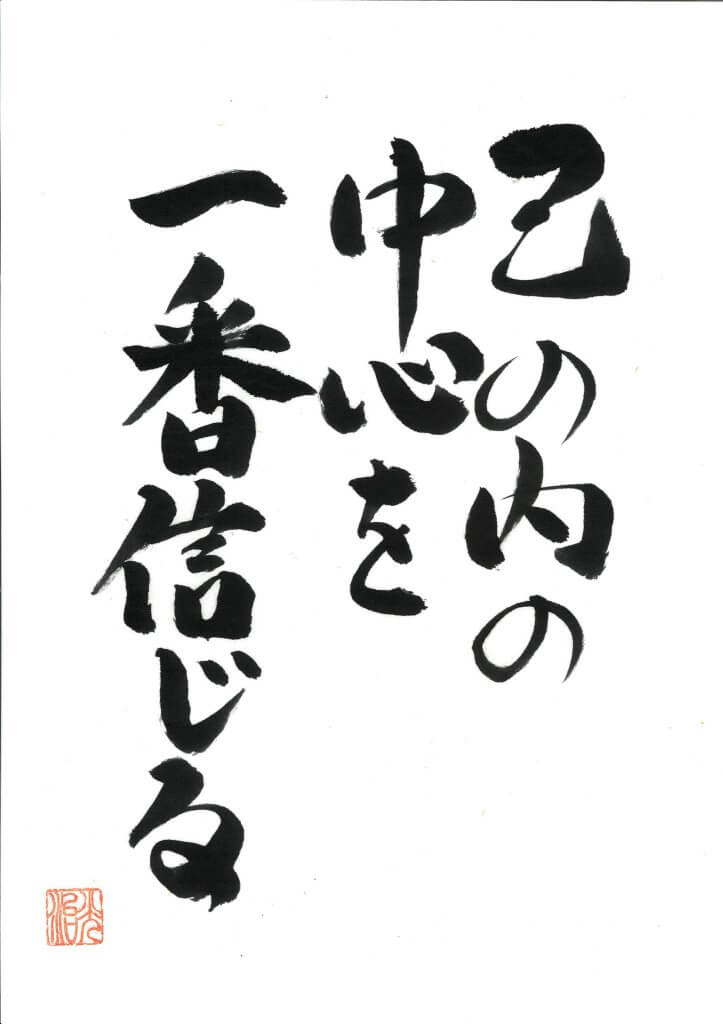 己の内の
中心を
一番信じる